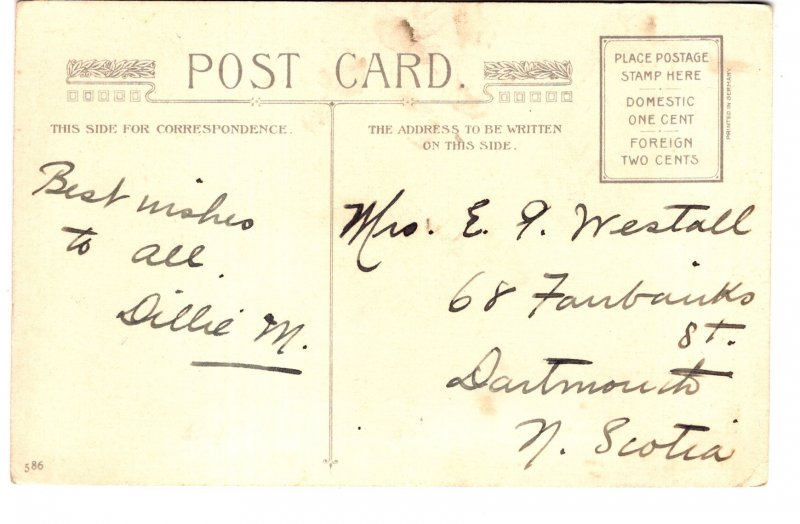 POST CARD.
PLACE POSTAGE
STAMP HERE
DOMESTIC
ONE CENT
FOREIGN
TWO CENTS
PRINTED IN GERMANY
THIS SIDE FOR CORRESPONDENCE.
THE ADDRESS TO BE WRITTEN
ON THIS SIDE.
Best wishes
to all.
Dillie M.
Mrs. E. P. Westall
68 Fairbanks
St.
Dartmouth
N. Scotia
586